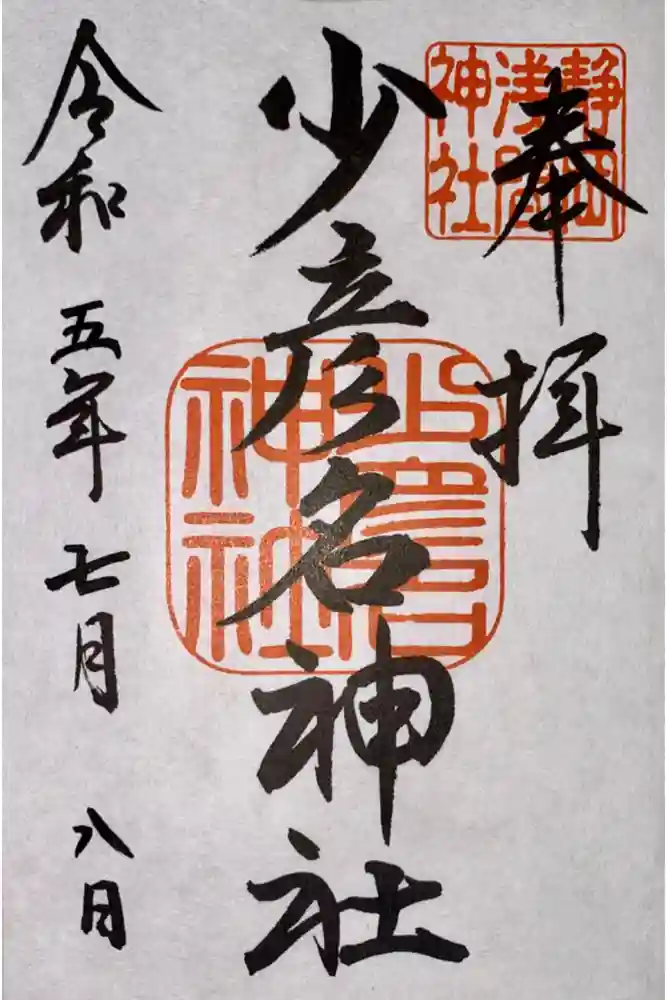 奉拝
静岡
浅間
神社
少彦名神社
少彦名
神社
令和五年七月八日